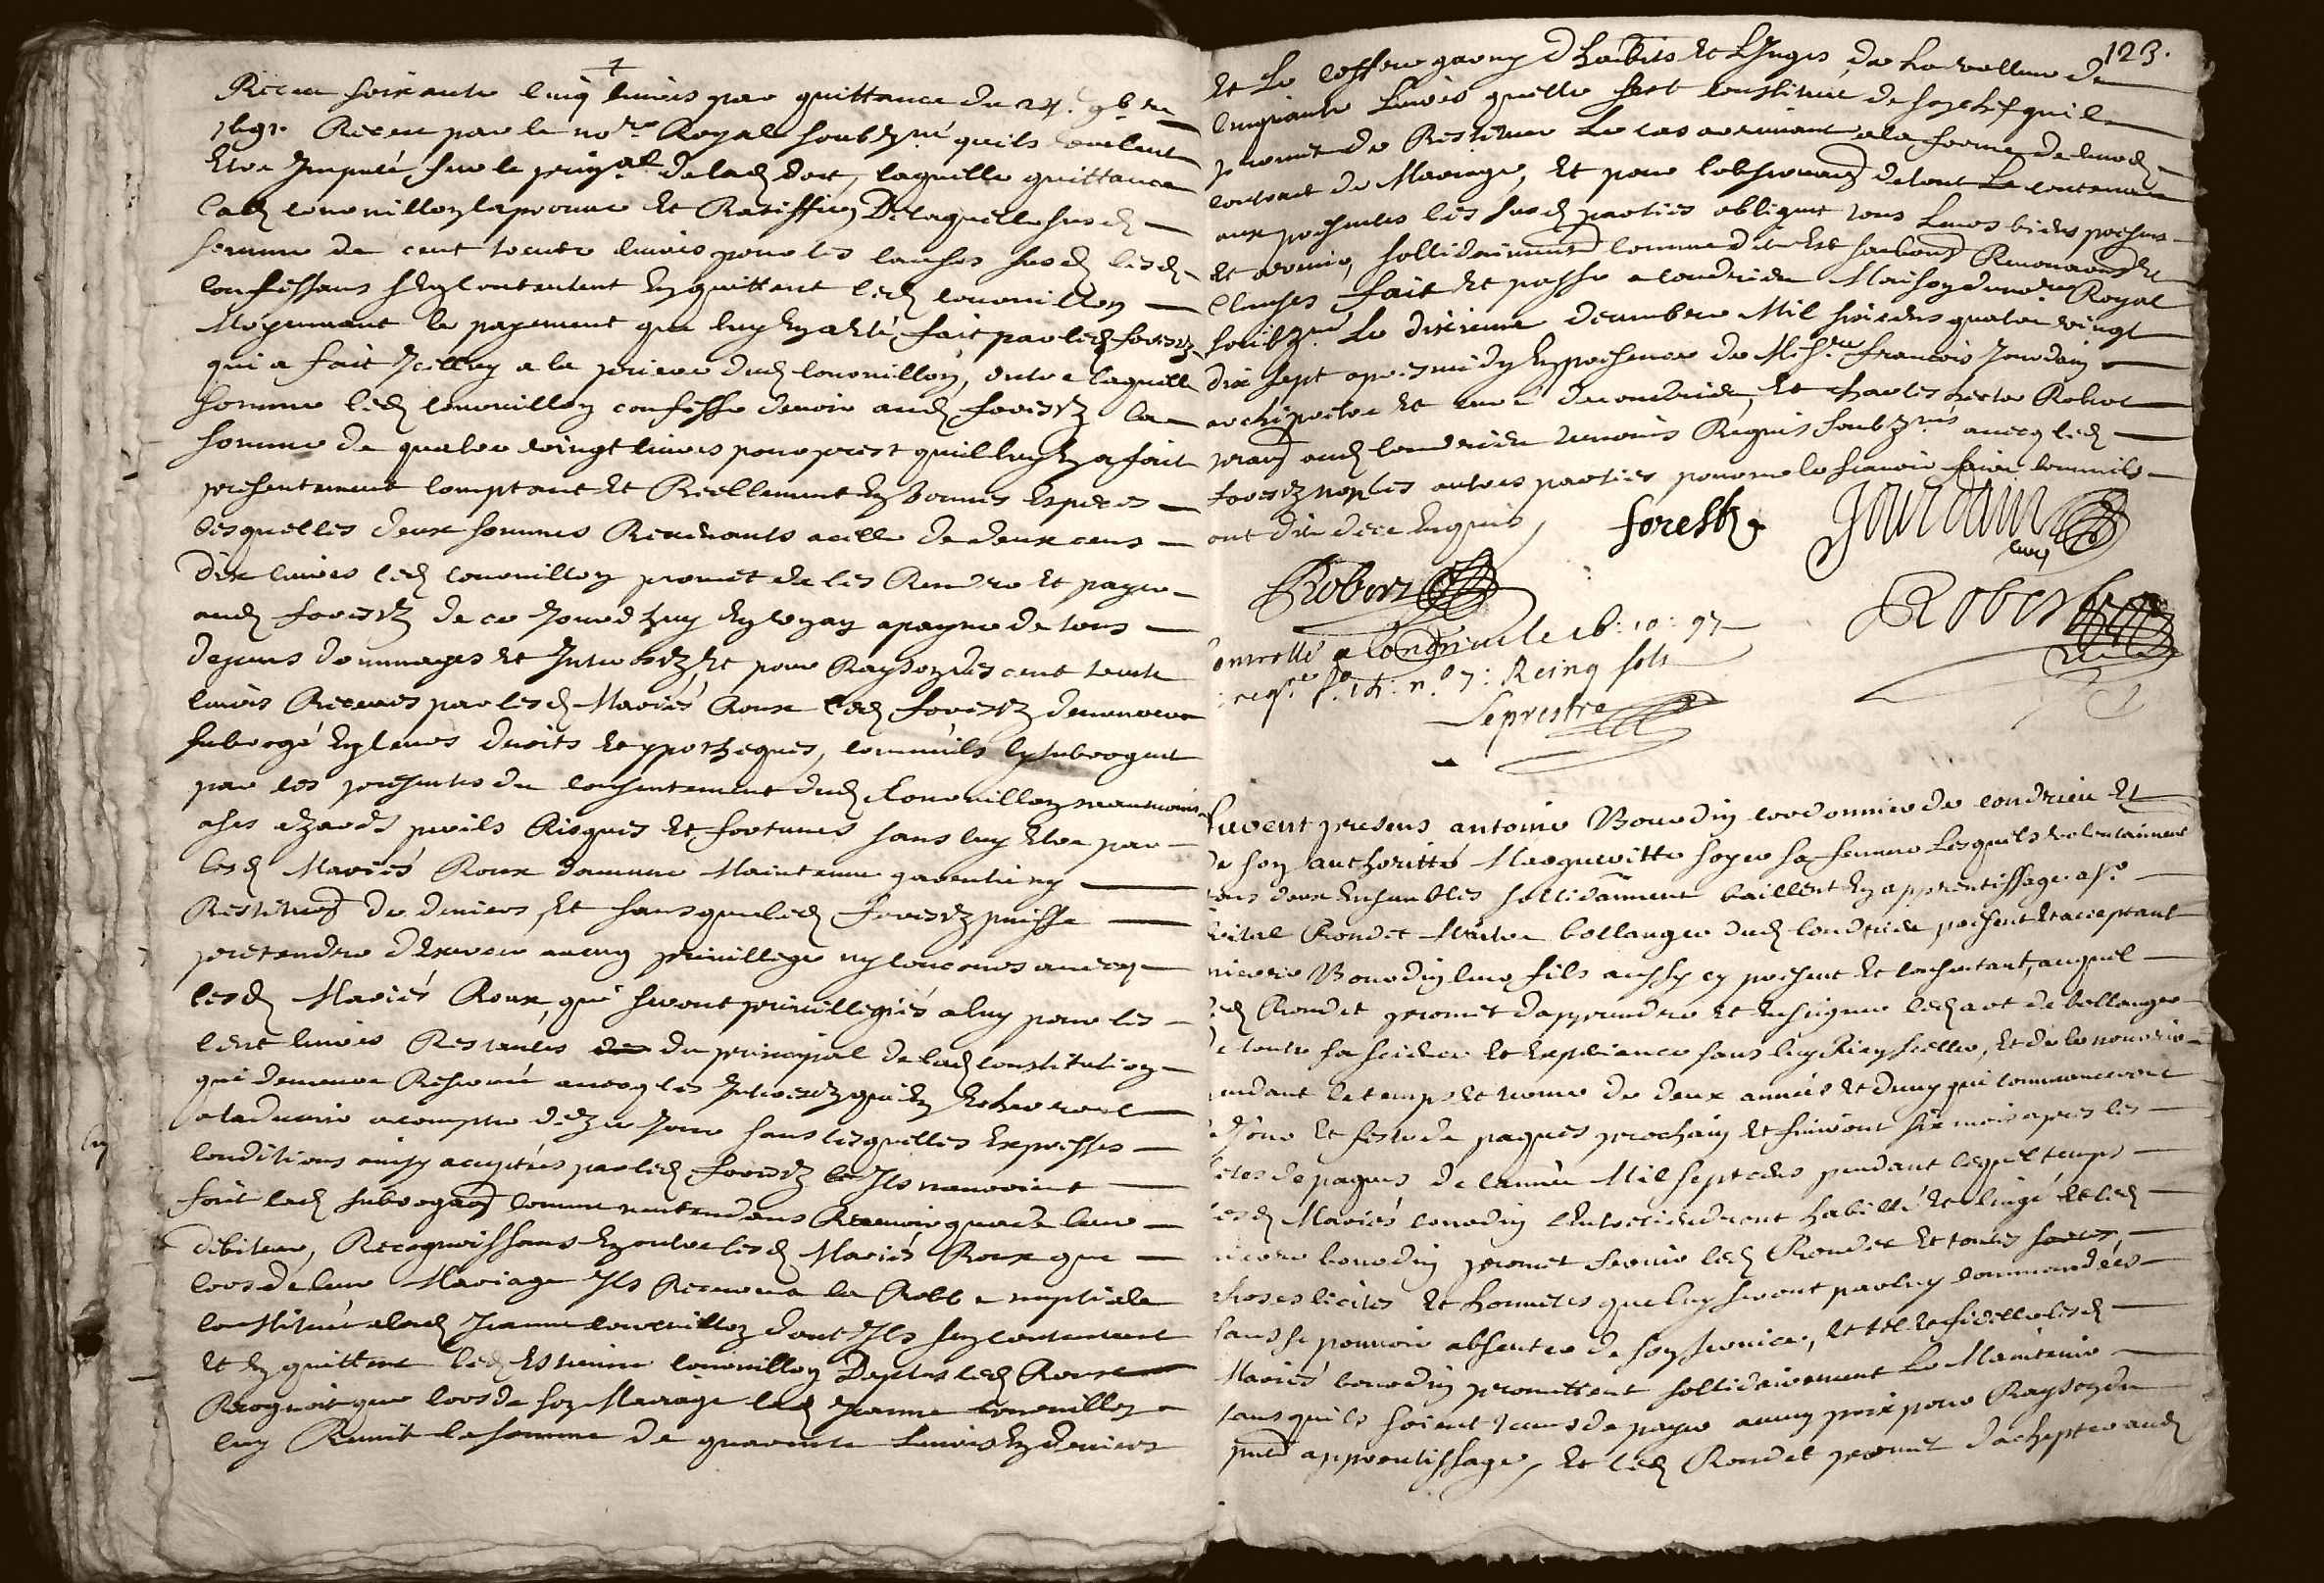 Receu soixante cinq livres par quittance du 24. 9bre
1691. Receu par le nore Royal soubzné quils veulent
Etre Imputé sur le prinpal de lad dot, laquelle quittance
led couvuillon laprouve et Ratiffie De laquelle susd
somme de cent trente livres pour les causes susd lesd
confessans sen contentent en quittent led couvuillon
Moyennant le payement que luy en a Eté fait par led forestz
qui a fait Icelluy a la priere dud couvuillon, outre laquelle
somme led couvuillon confesse devoir aud forestz la
somme de quatre vingt livres pour prest quil luy en a fait
presentement comptant et Reellement en bonnes Especes
lesquelles deux sommes Revenants a celle de deux cens
dix livres led couvuillon promet de les Rendre et payer
aud forestz de ce Jourdhuy en un an a payne de tous
depens dommages et Interestz, et pour Rayson des cent trente
livres Receues par lesd Mariés Roux led forestz demeurera
subrogé en leurs droits et ypotheques, comme ils le subrogent
par les presentes du consentement dud Couvuillon neantmoins
a ses azards perils Risques et fortunes sans luy Etre par
lesd Mariés Roux daucune Maintenue garentie ny
Restitution de deniers, et sans que led forestz puisse
pretendre dexercer aucun privillege ny concours avecq
lesd Mariés Roux, qui seront privillegiés a luy pour les
cent livres Restantes du principal de lad constitution
qui demeure Reservée avecq les Interestz qui en Echeront
a ladvenir a compter dez ce Jour sans lesquelles Expresses
conditions ainsy acceptées par led forestz Ils nauroient
fait lad subrogation comme nentendans Recevoir que de leur
debiteur, Recognoissans en outre lesd Mariés Roux que
lors de leur Mariage Ils Receurent la Robbe nuptiale
constituée a lad Jeanne couvuillon dont Ils sen contentent
et en quittent led Estienne couvuillon De plus led Roux
Recognoit que lors de son Mariage lad Jeanne couvuillon
luy Remit la somme de quarente Livres en deniers
123.
et Le coffre garny dhabits et Linges de la valleur de
cinquante Livres quelle sest constitué de son chef quil
promet de Restituer le cas avenant a la forme de leurd
contract de Mariage, et pour lobservaon de tout Le contenu
aux presentes les susd parties obligent tous Leurs biens presens
et avenir, sollidairement comme dit est Renonaons et
Clauses fait et passé a condrieu Maison du nore Royal
soubzné Le dixieme decembre Mil six cens quatre vingt
dix sept apres midy En presence de Messre francois Jourdain
archiprestre et curé de condrieu, et charles hector Robert
pratn aud condrieu temoins Requis soubznés avecq led
forestz non les autres parties pour ne le scavoir faire comme ils
ont dit de ce Enquis,
forestz
Jourdain
curé
CRobert
Robert
Controllé a Condrieu le 16: 10: 97
regre fo 14: n.o 7: R cinq sols
Leprestre
furent presens antoine Bourdin cordonnier de condrieu et
de son authoritté Margueritte soyer sa femme Lesquels volontairement
tous deux Ensembles sollidairement baillent En apprentissage a sr
vital Rondet Maitre bollanger dud condrieu present et acceptant
pierre Bourdin leur fils aussy cy present et consentant, auquel
led Rondet promet dapprendre et Enseigner led art de bollanger
de toute sa science et Experiance sans luy Rien celler, et de le nourrir
pendant le temps et terme de deux années et demy qui commenceront
a Jour et feste de paques prochain et finiront six mois apres les
fetes de paques de lannée Mil sept cens pendant lequel temps
lesd Mariés bourdin lentretiendront habillé et lingé et led
pierre bourdin promet servir led Rondet et toutes
choses licites et honnetes que luy seront par luy commandées
sans se pouvoir absenter de son service, et tel et fidelle lesd
Mariés bourdin promettent sollidairement Le Maintenir
sans quils soient tenus de payer aucun prix pour Rayson du
pnt apprentissage, et led Rondet promet dachepter aud